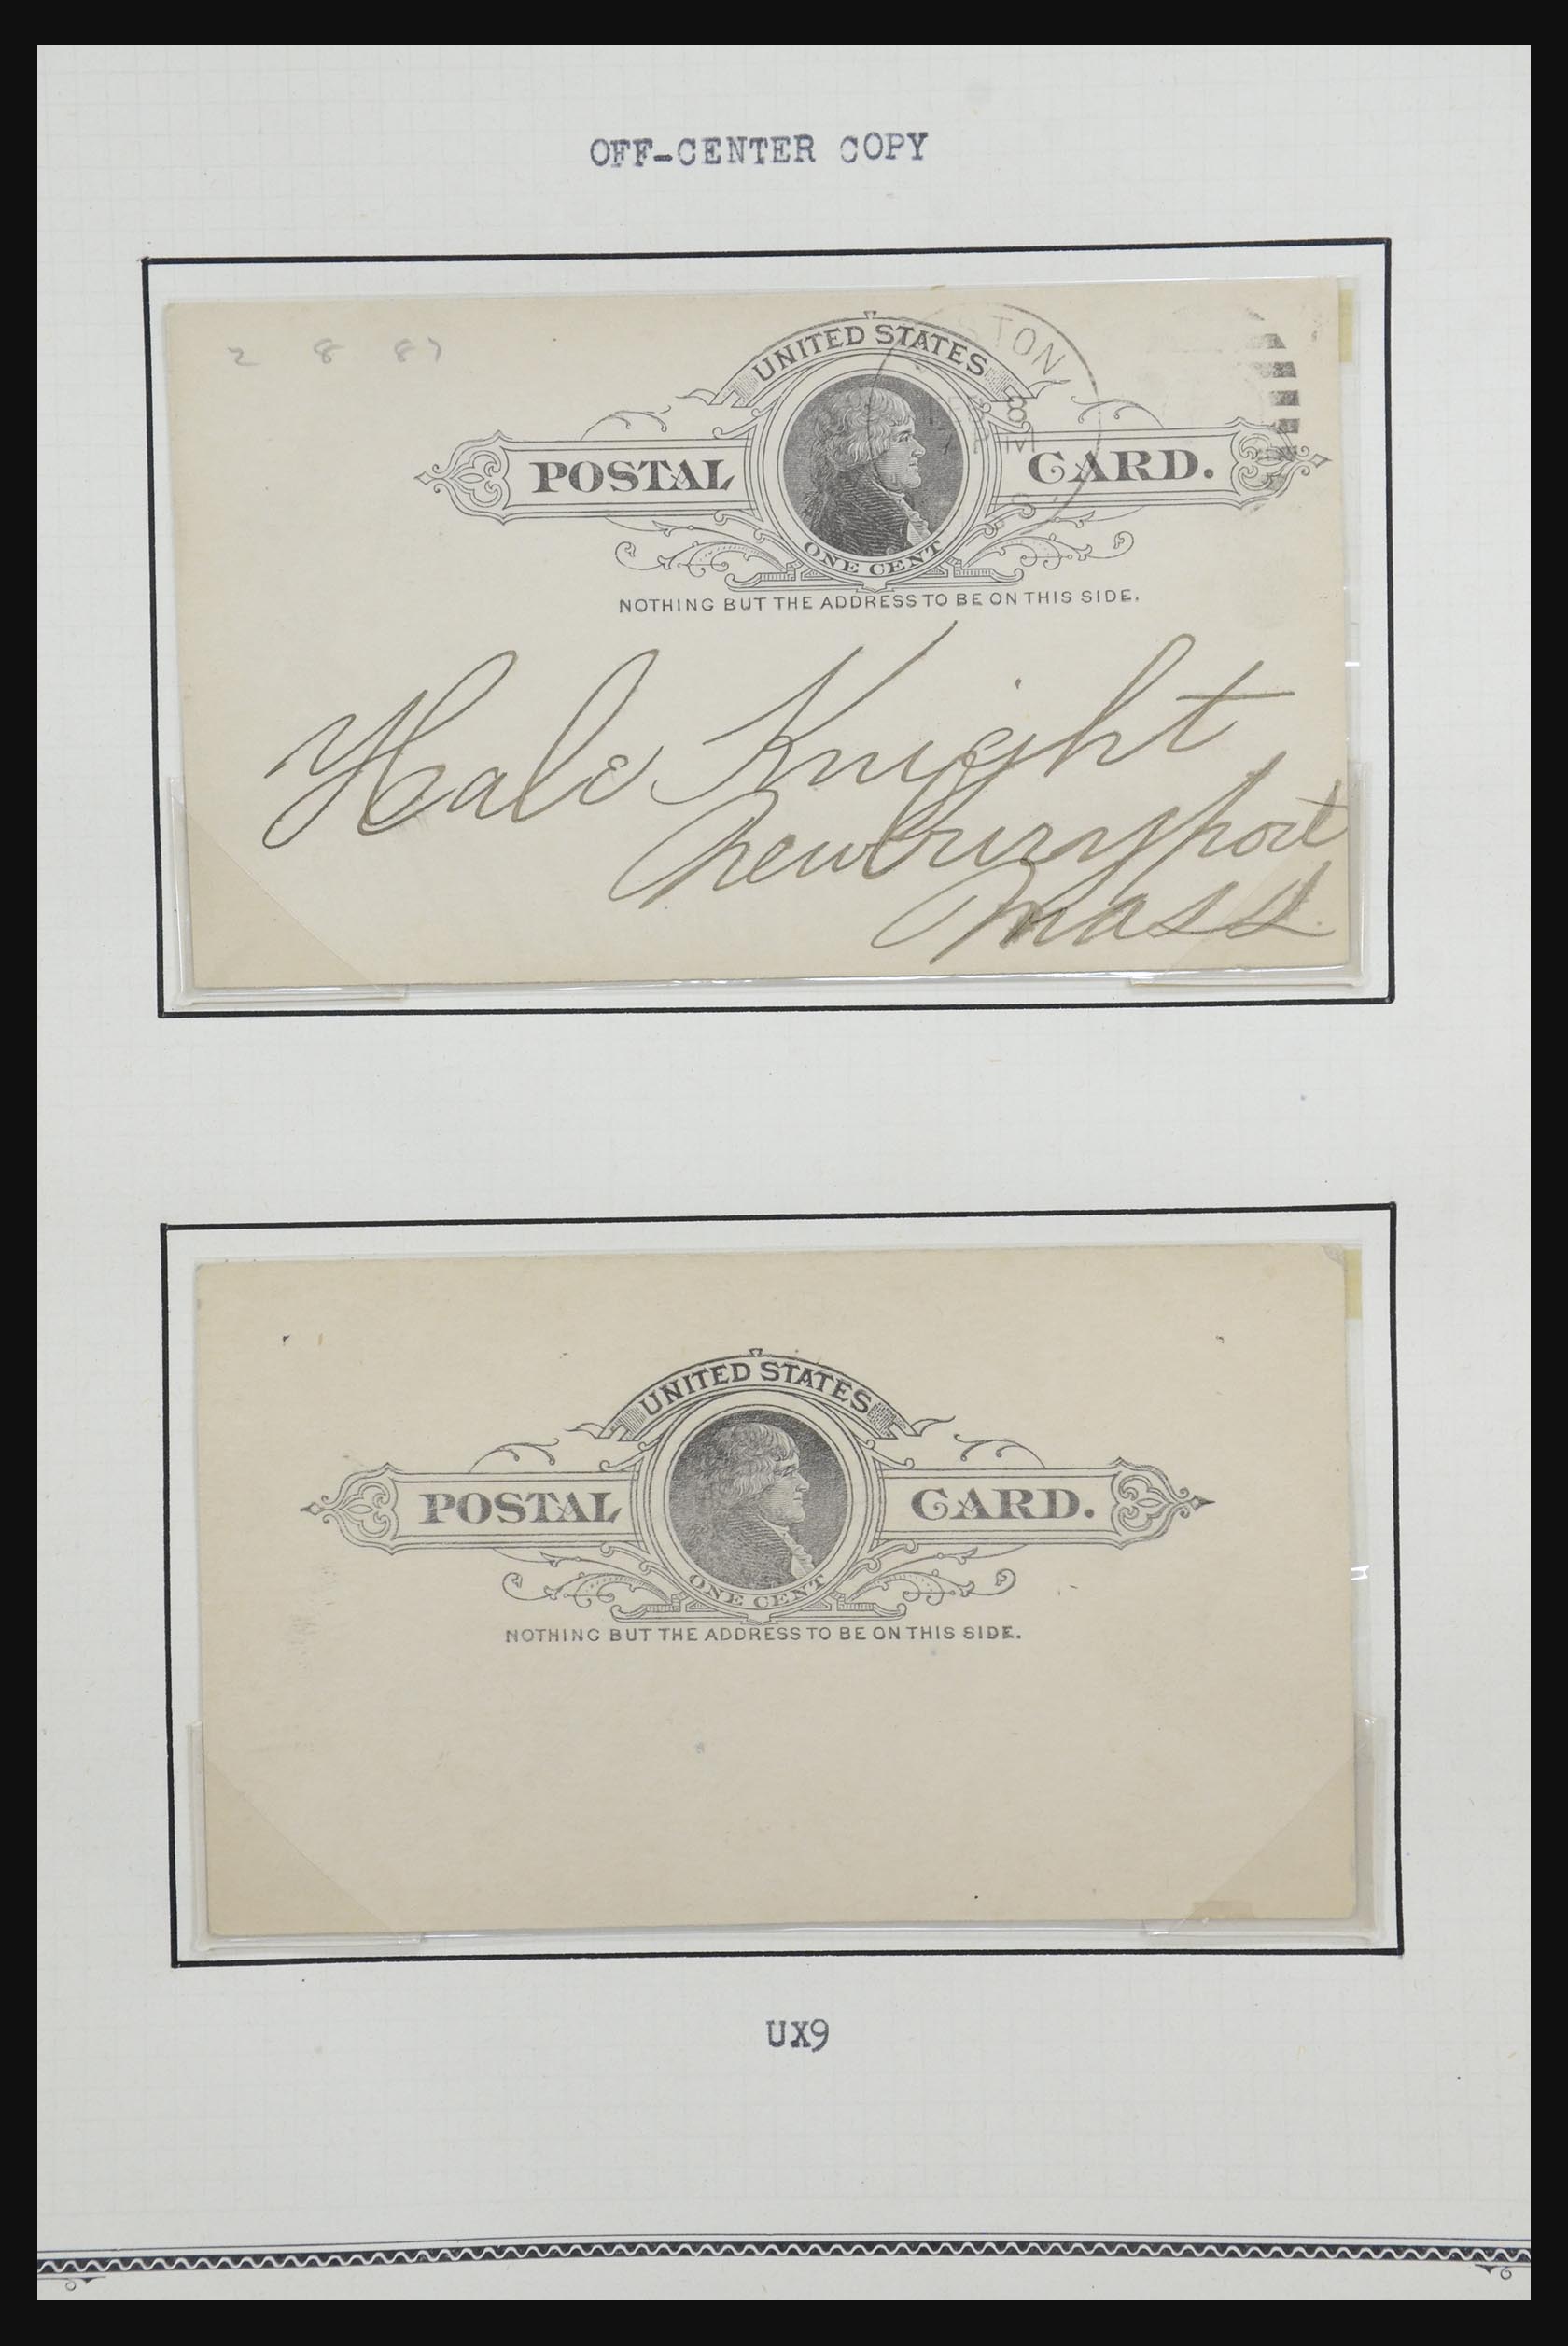 OFF-CENTER COPY
2 8 87
UNITED STATES
STON
POSTAL CARD.
ONE CENT
NOTHING BUT THE ADDRESS TO BE ON THIS SIDE.
Hale Knight
Newburyport
Mass.
UNITED STATES
POSTAL CARD.
ONE CENT
NOTHING BUT THE ADDRESS TO BE ON THIS SIDE.
UX9